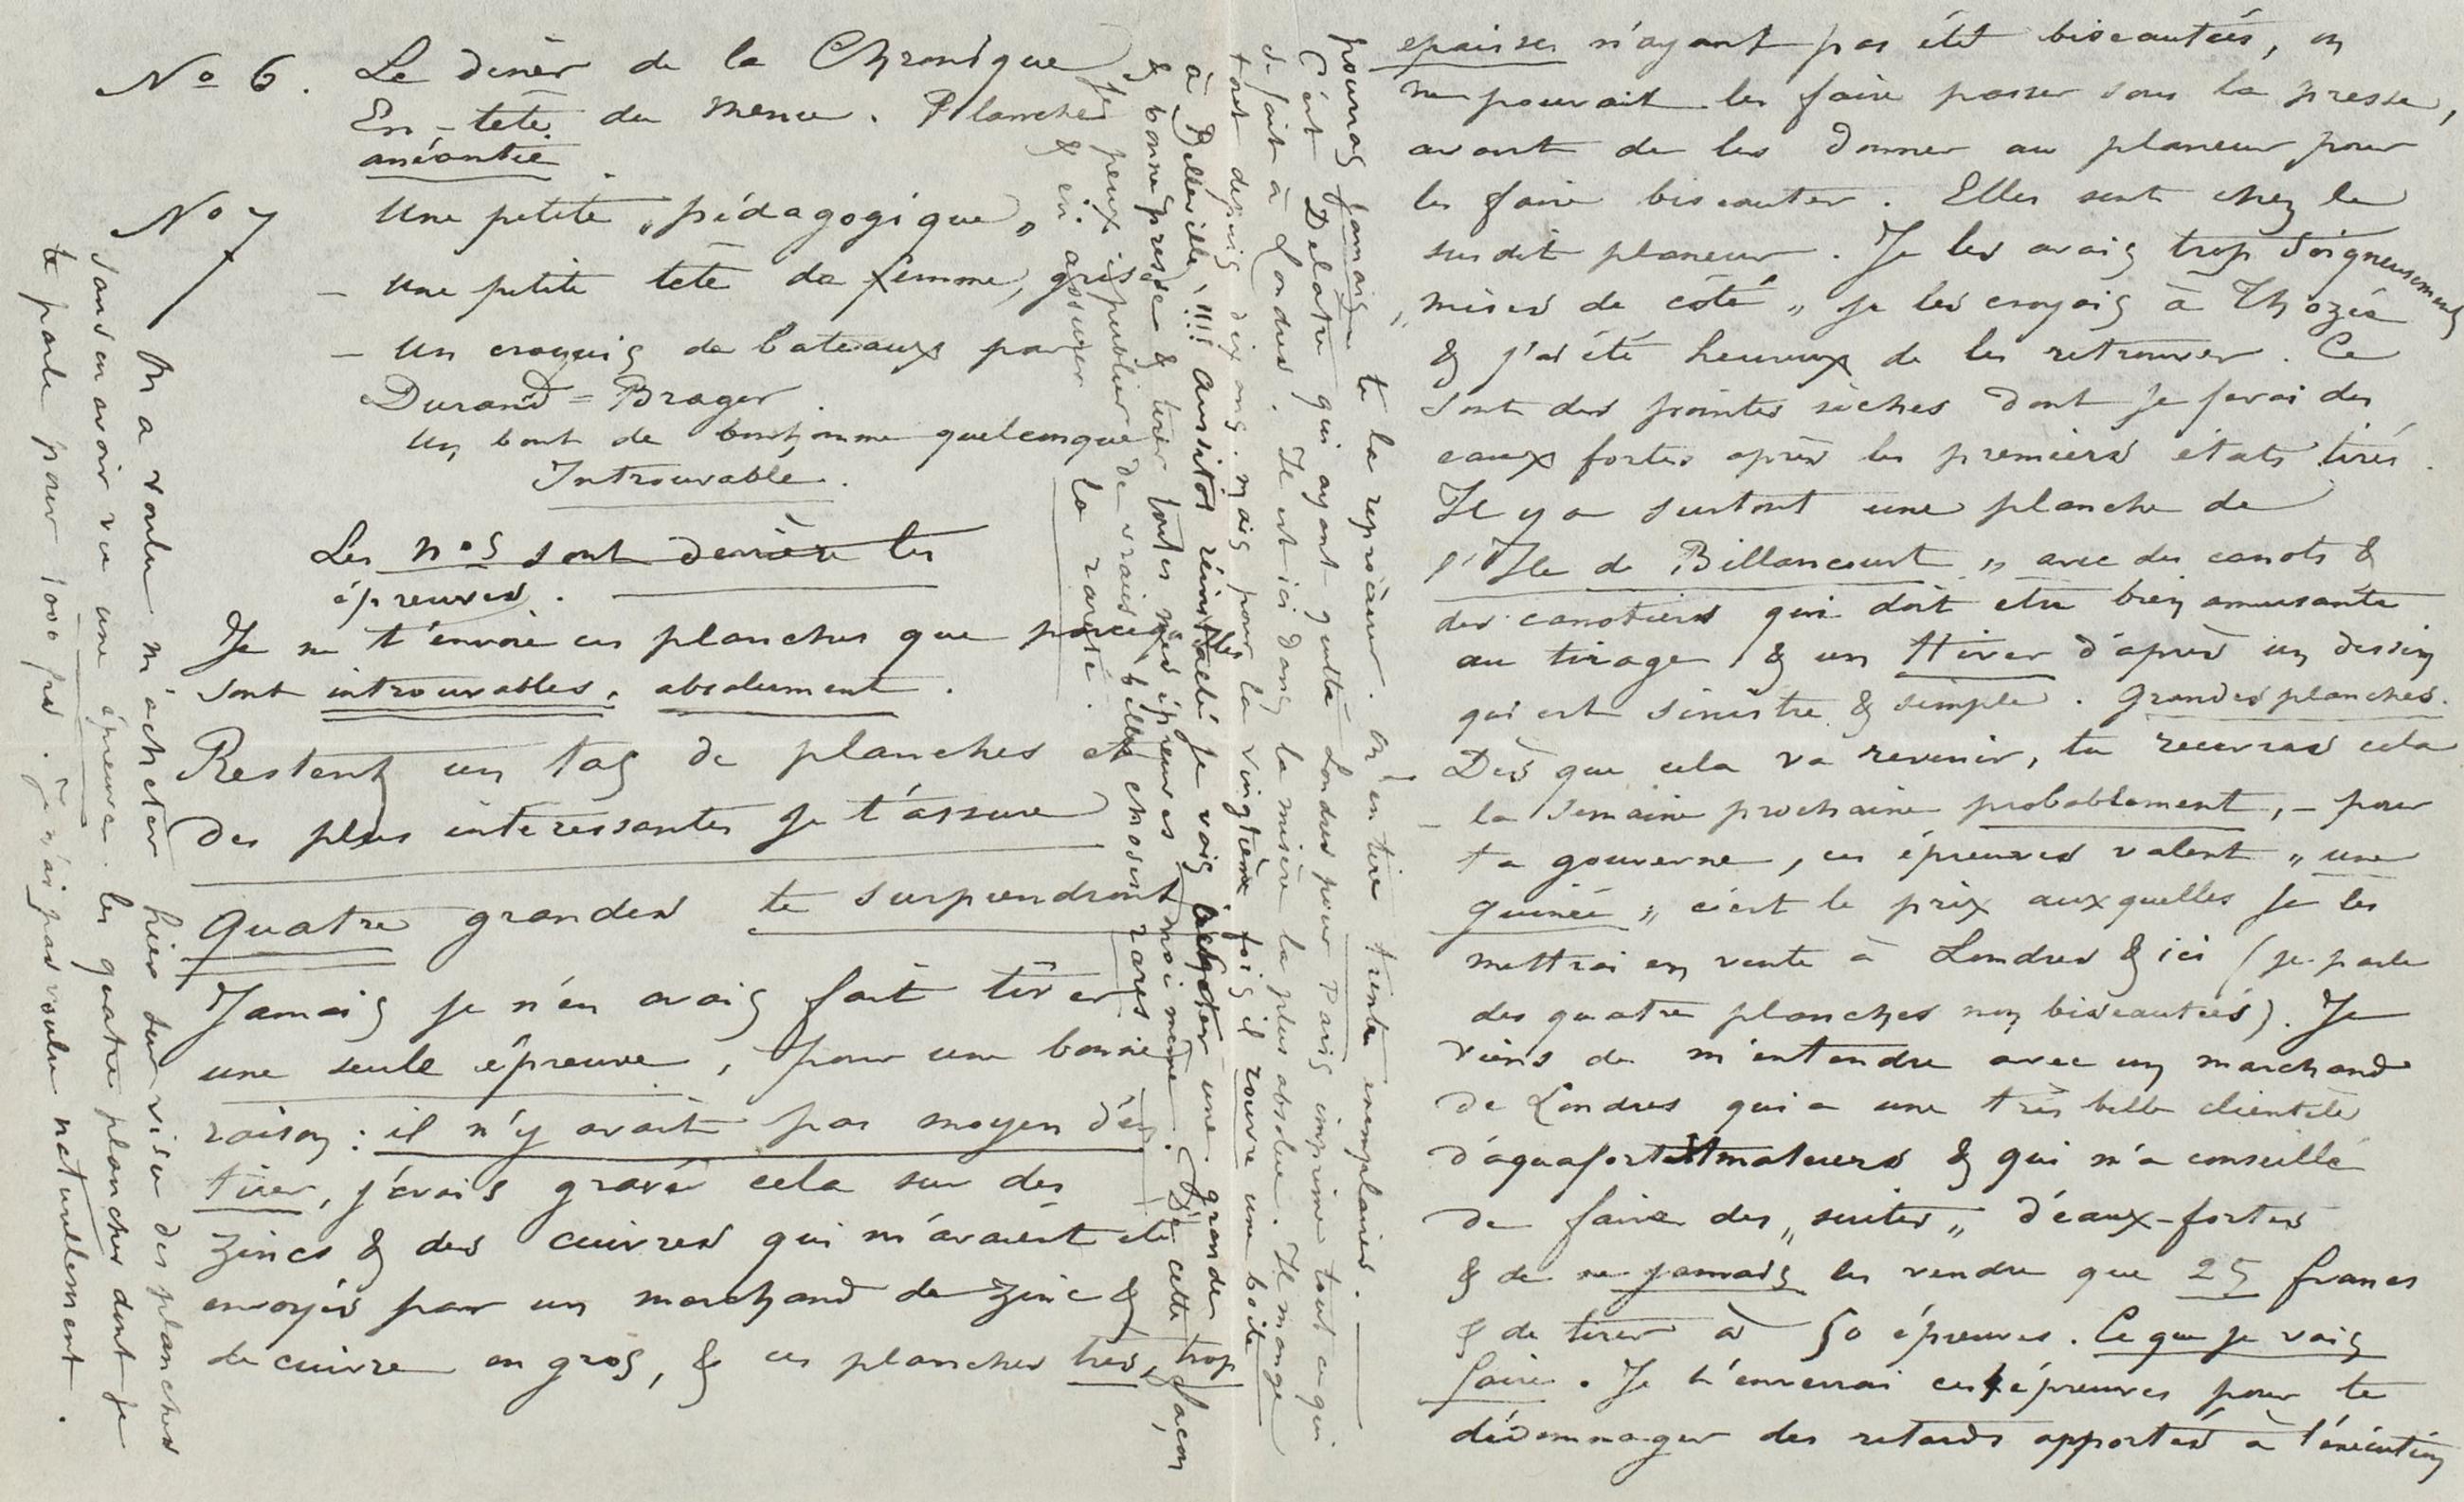 No 6. Le dîner de la Chronique
En-tête du menu. Planche
anéantie
No 7 Une petite „pédagogique„
– Une petite tête de femme, grise
– Un croquis de bateaux par
Durand=Brager.
Un bout de bonhomme quelconque
Introuvable.
Les nos sont derrière les
épreuves.
Je ne t'envoie ces planches que parceq'elles
sont introuvables, absolument.
Restent un tas de planches et
des plus intéressantes je t'assure
Quatre grandes te surprendront
Jamais je n'en avais fait tirer
une seule épreuve, pour une bonne
raison : il n'y avait pas moyen d'en
tirer, j'avais gravé cela sur des
zincs & des cuivres qui m'avaient été
envoyés par un marchand de zinc &
de cuivre en gros, & ces planches très, trop
epaisses n'ayant pas étét biseautées, on
ne pouvait les faire passer sous la presse,
avant de les donner au planeur pour
les faire biseauter. Elles sont chez le
susdit planeur. Je les avais trop soigneusement
„mises de côté„ je les croyais à Thozée
& j'ai été heureux de les retrouver. Ce
sont des pointes sèches dont je ferai des
eaux fortes après les premiers états tirés.
Il y a surtout une planche de
l'„Ile de Billancourt„ avec des canots &
des canotiers qui doit etre bien amusante
au tirage & un Hiver d'après un dessin
qui est sinistre & simple. Grandes planches.
Dès que cela va revenir, tu recevras cela
– la semaine prochaine probablement, – pour
ta gouverne, ces épreuves valent „une
guinée„ c'est le prix auxquelles je les
mettrai en vente à Londres & ici (je parle
des quatre planches non biseautées). Je
viens de m'entendre avec un marchand
de Londres qui a une très belle clientèle
d'aquafortistmateurs & qui m'a conseillé
de faire des „suites„ d'eaux-fortes
& de ne jamais les vendre que 25 francs
& de tirer à 50 épreuves. Ce que je vais
faire. Je t'enverrai ces épreuves pour te
dédommager des retards apportés à l'exécution
On a voulu m'acheter hier sur visu des planches
sans en avoir vu une épreuve les quatre planches dont je
te parle pour 1000 frs. Je n'ai pas voulu naturellement.
pourras jamais te la reprocher. On en tire trente exemplaires.
C'est Delatre qui ayant quitté Londres pour Paris imprime tout ce qui
se fait à Londres. Il est ici dans la misère la plus absolue. Il mange
tout depuis dix ans. Mais pour la vingtième fois il rouvre une boîte
à Belleville, !!!! aussitôt réinstallé je vais acheter une grande
& bonne presse & tirer toutes mes épreuves moi même. De cette façon
je peux publier de vraies belles choses rares
& en assurer la rareté.